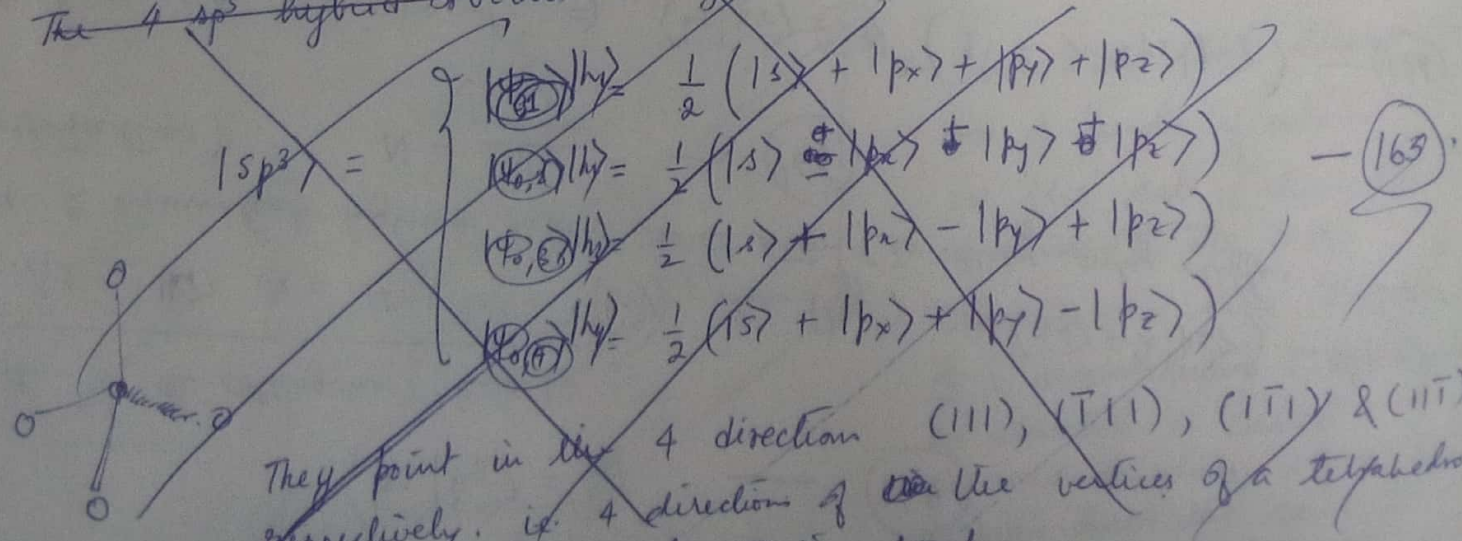 The 4 sp³ hybrid
|h₁⟩ = 1/2 (|s⟩ + |pₓ⟩ + |p_y⟩ + |p_z⟩)
|sp³⟩ = |h⟩ = 1/2 (|s⟩ |pₓ⟩ + |p_y⟩ + |p_z⟩) — 163.
|h₃⟩ = 1/2 (|s⟩ + |pₓ⟩ - |p_y⟩ + |p_z⟩)
|h₄⟩ = 1/2 (|s⟩ + |pₓ⟩ + |p_y⟩ - |p_z⟩)
They point in the 4 direction (111), (1̄11), (11̄1) & (111̄)
respectively. ie. 4 directions of the vertices of a tetrahedro